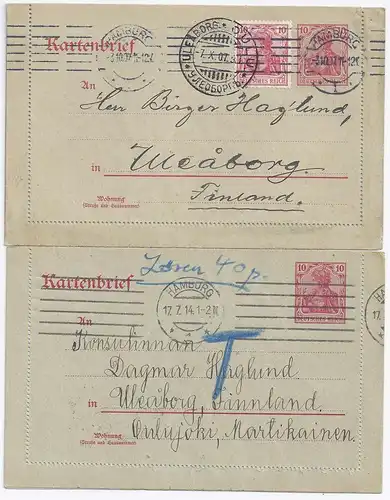 HAMBURG
ULEABORG OULU
7.X.07.
УЛЕОБОРГЪ
10 10
DEUTSCHES REICH
HAMBURG
Kartenbrief
An
Herr Birger Haglund
in Uleåborg.
Finland.
Wohnung
(Straße und Hausnummer)
Lösen 40 p.
10 10
DEUTSCHES REICH
Kartenbrief
HAMBURG
17.7.14.1-2N
17.7.14.1-2N
An
Konsulinnan
T
Dagmar Haglund
in Uleåborg, Finnland.
Oulujoki, Martikainen.
Wohnung
(Straße und Hausnummer)